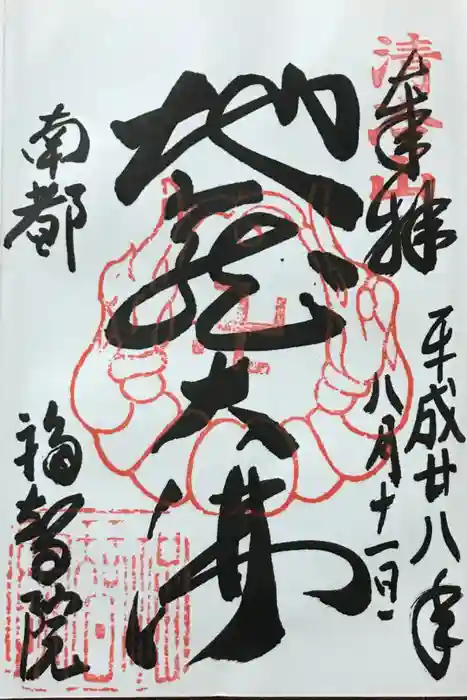 奉拝
平成廿八年
八月十一日
地蔵大佛
南都
福智院